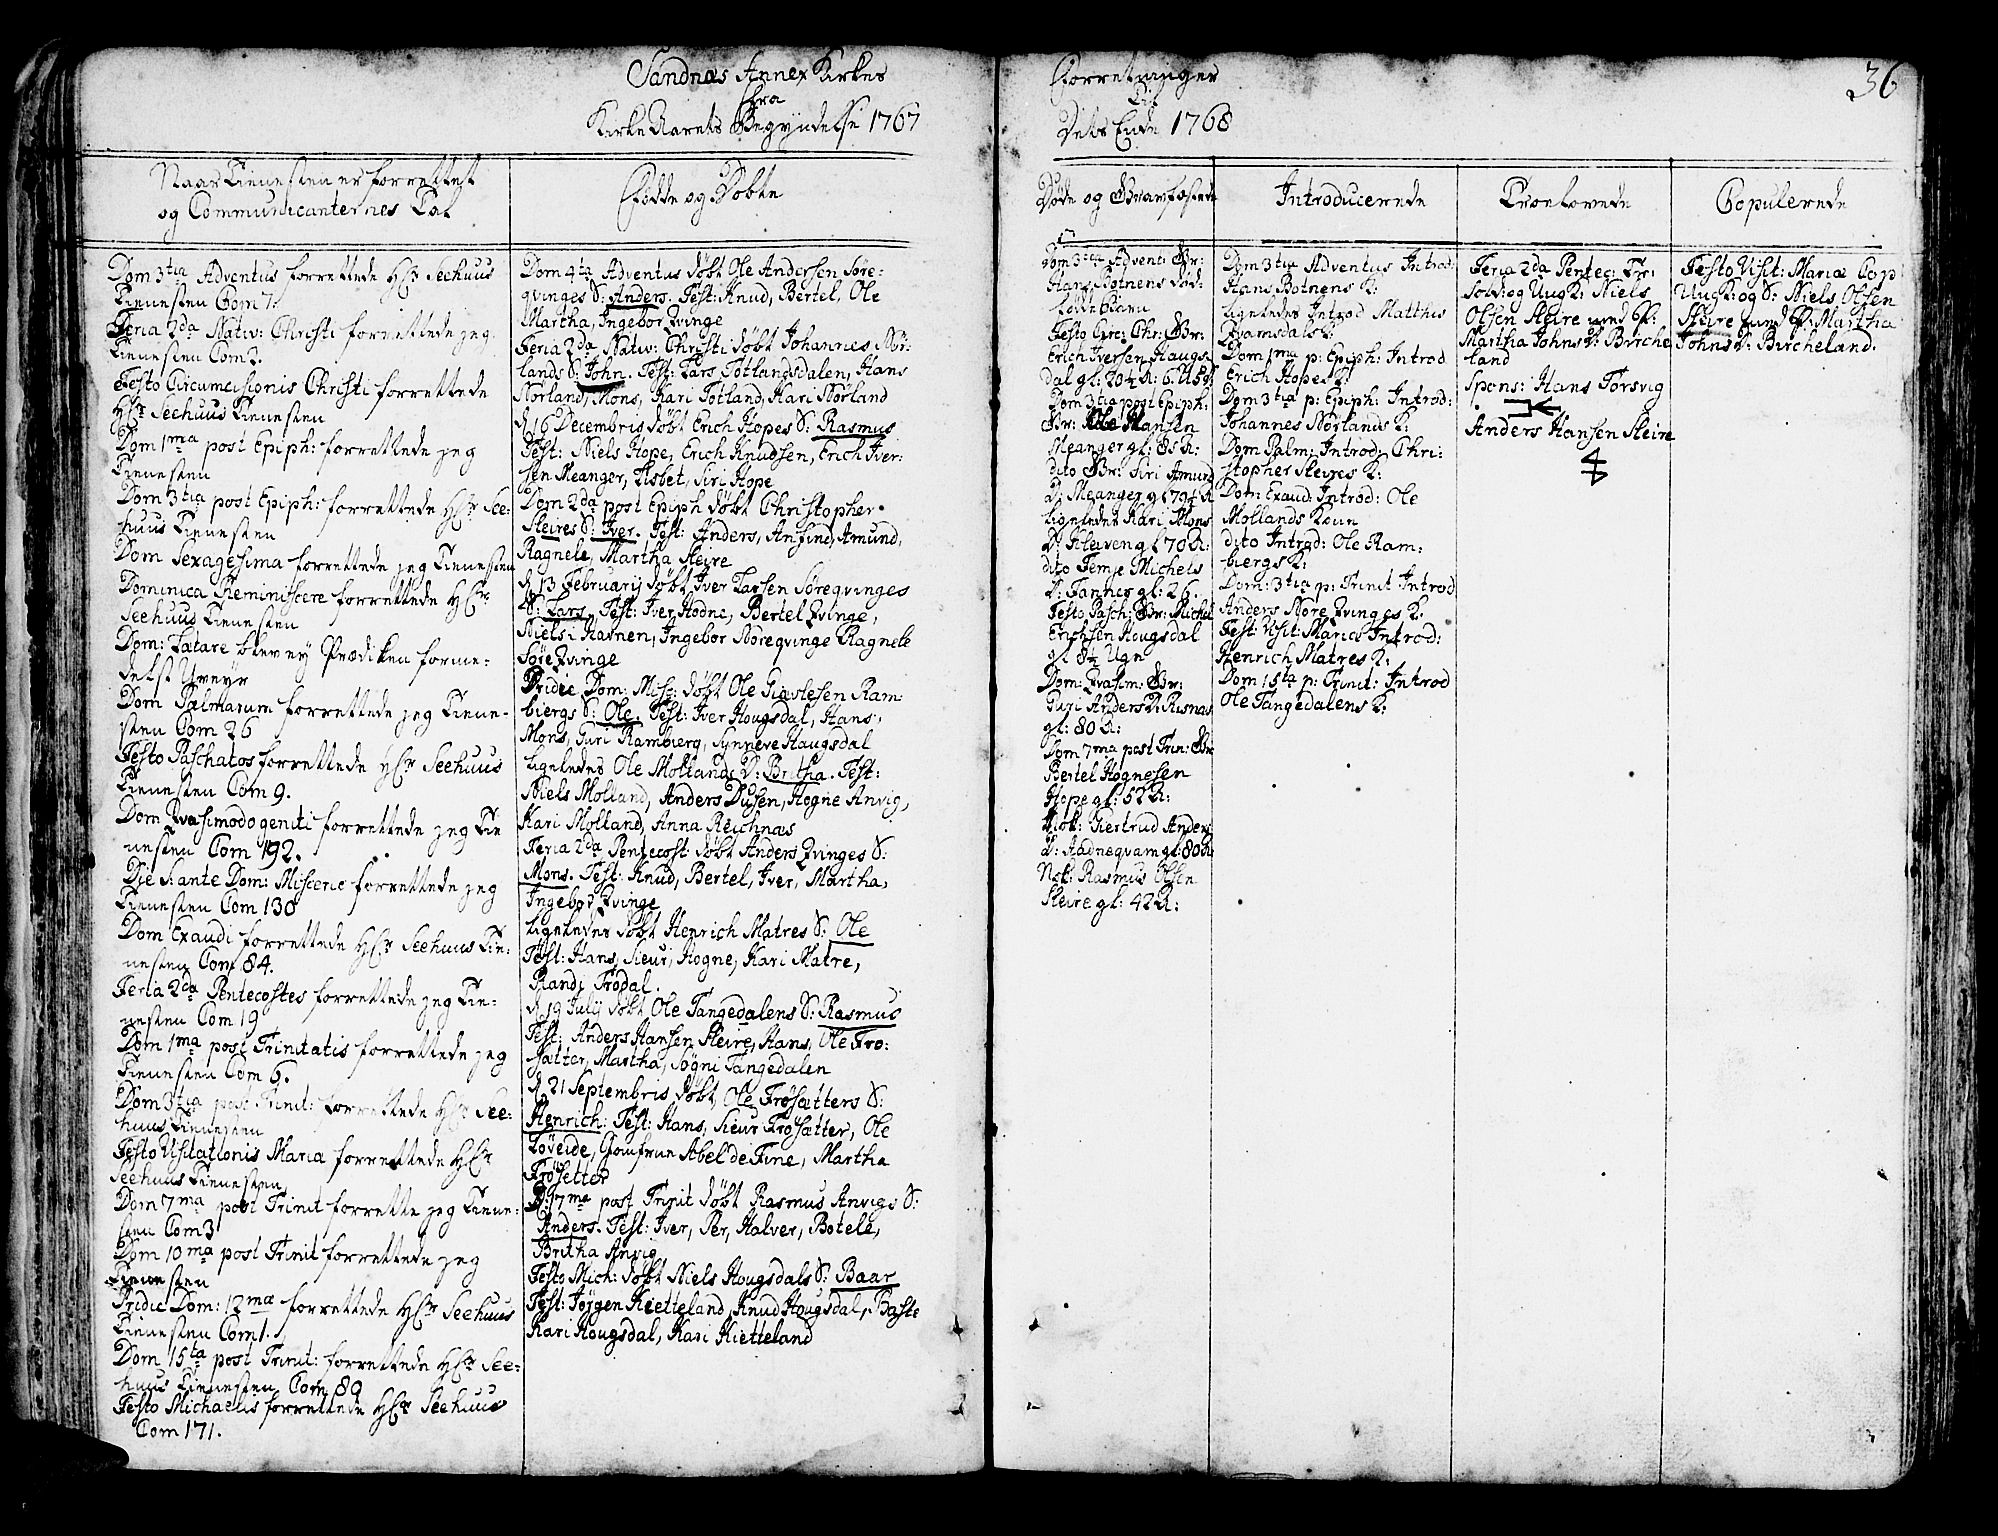 Sandnæs Annex Kirkes
fra
Kirke Aarets Begyndelse 1767
Naar Tienesten er forrettet
og Communicanternes Tal
Dom 3tia Adventus forrettede Hr Seehuus
Tienesten Com 7.
Feria 2da Nativ: Christi forrettede jeg
Tienesten Com 2.
Festo Circumcisionis Christi forrettede
Hr Seehuus Tienesten
Dom 1ma post Epiph: forrettede jeg
Tienesten
Dom 3tia post Epiph: forrettede Hr See-
huus Tienesten
Dom Sexagesima forrettede jeg Tienesten
Dominica Reminiscere forrettede Hr
Seehuus Tienesten
Dom: Lætare blev ej Prædiken forme-
delst Uveyr
Dom Palmarum forrettede jeg Tiene-
sten Com 26
Festo Paschatos forrettede Hr Seehuus
Tienesten Com 9.
Dom Qvasimodogeniti forrettede jeg Tie
nesten Com 192.
Die S. ante Dom: Miserc forrettede jeg
Tienesten Com 130
Dom Exaudi forrettede Hr Seehuus Tie-
nesten Com 84.
Feria 2da Pentecostes forrettede jeg Tie-
nesten Com 19
Dom 1ma post Trinitatis forrettede jeg
Tienesten Com 6.
Dom 3tia post Trinit: forrettede Hr See-
huus Tienesten
Festo Visitationis Maria forrettede Hr
Seehuus Tienesten
Dom 7ma post Trinit forrette jeg Tiene-
sten Com 3
Dom 10ma post Trinit forrettede jeg
Tienesten
Pridie Dom: 12mæ forrettede Hr Seehuus
Tienesten Com 1.
Dom 15ta post Trinit: forrettede Hr See-
huus Tienesten Com 80
Festo Michaelis forrettede Hr Seehuus
Com 171.
Fødte og Døbte
Dom 4ta Adventus døbt Ole Andersen Søre-
qvinges S: Anders. Test: Knud, Bertel, Ole
Martha, Ingebor Qvinge
Feria 2da Nativ: Christi døbt Johannes Nør-
lands S: John. Test: Lars Totlangsdalen, Hans
Norland, Mons, Kari Totland, Kari Nørland
d. 16 Decembris døbt Erich Hopes S: Rasmus
Test: Niels Hope, Erich Knudsen, Erich Iver-
sen Meanger, Lisbet, Siri Hope
Dom 2da post Epiph døbt Christopher
Sleires S: Iver. Test: Anders, Anfind, Amund,
Ragnele, Martha Sleire
d. 13 Februarij døbt Iver Larsen Søreqvinges
S: Lars. Test: Iver Hodne, Bertel Qvinge,
Niels i Havnen, Ingebor Nøreqvinge Ragnele
Søre Qvinge
Pridie Dom: Misc: døbt Ole Giæslesen Ram-
biergs S: Ole. Test: Iver Hougsdal, Hans,
Mons, Guri Ramberg, Synneve Haugsdal
Ligeledes Ole Mollands D: Britha. Test:
Niels Molland, Anders Dusen, Hogne Anvig,
Kari Molland, Anna Reichnæs
Feria 2da Pentecost døbt Anders Qvinges S:
Mons. Test: Knud, Bertel, Iver, Martha,
Ingebor Qvinge
Ligeledes døbt Henrich Matres S: Ole
Test: Hans, Sieur, Hogne, Kari Matre,
Randi Trodal.
d. 19 July døbt Ole Tangedalens S: Rasmus
Test: Anders Hansen Sleire, Hans, Ole Frø-
sætter, Martha, Søgni Tangedalen
d. 21 Septembris døbt Ole Frøsætters S:
Henrich: Test: Hans, Sieur Frøsætter, Ole
Løveide, Jomfrue Abel de Fine, Martha
Frøsetter
D. 17ma post Trinit døbt Rasmus Anvigs S:
Anders. Test: Iver, Per, Halver, Botele,
Britha Anvig
Festo Mich: døbt Niels Hougsdals S: Baar
Test: Jørgen Kietteland, Knud Hougsdal, Baste
Kari Hougsdal, Kari Kietteland
Forretninger
Til
Dets Ende 1768
36
Døde og Gravfæstede
Dom 3tia Advent: Gr:
Hans Botnens død-
fødte Barn
Festo Circ: Chr: Gr:
Erich Iversen Haugs-
dal gl: 20¼ A: 6. U
Dom 3tia post Epiph:
Gr: Ole Hansen
Meanger gl: 85 A:
dito Gr: Siri Amund
D: Meanger gl 79½ A
Ligeledes Kari Mons
D: Kleiven gl 70 A:
dito Temje Michels
D: Tanher gl: 26.
Festo Pasch: Gr: Michel
Erichsen Hougsdal
gl 8½ Ugr
Dom: Qvasim: Gr:
Guri Anders D: Risnæs
gl: 80 A:
Dom 7ma post Trin: Gr:
Bertel Hognesen
Hope gl: 52 A:
Nok: Giertrud Anders
D: Aadneqvam gl: 80 A:
Nok: Rasmus Olsen
Sleire gl: 42 A:
Introducerede
Dom 3tia Adventus Introd:
Hans Botnens K:
Ligeledes Introd Matthis
Qvamsdals K:
Dom 1ma p: Epiph: Introd
Erich Hopes K:
Dom 3tia p: Epiph: Introd:
Johannes Nørlands K:
Dom Palm: Introd: Chri-
stopher Sleires K:
Dom: Exaud: Introd: Ole
Mollands Kone
dito Introd: Ole Ram-
biergs K:
Dom: 3tia p: Trinit Introd
Anders Nøre Qvinges K:
Fest: Visit: Mariæ Introd:
Henrich Matres K:
Dom 15ta p: Trinit: Introd
Ole Tangedalens K:
Troelovede
Feria 2da Pentec: Tr:
Sold: og Ung K: Niels
Olsen Sleire med P:
Martha Johns D: Birche
land
Spons: Hans Torsvig
Anders Hansen Sleire
Copulerede
Festo Visit: Mariæ Cop
Ung K: og S: Niels Olsen
Sleire med P: Martha
Johns D: Bircheland.